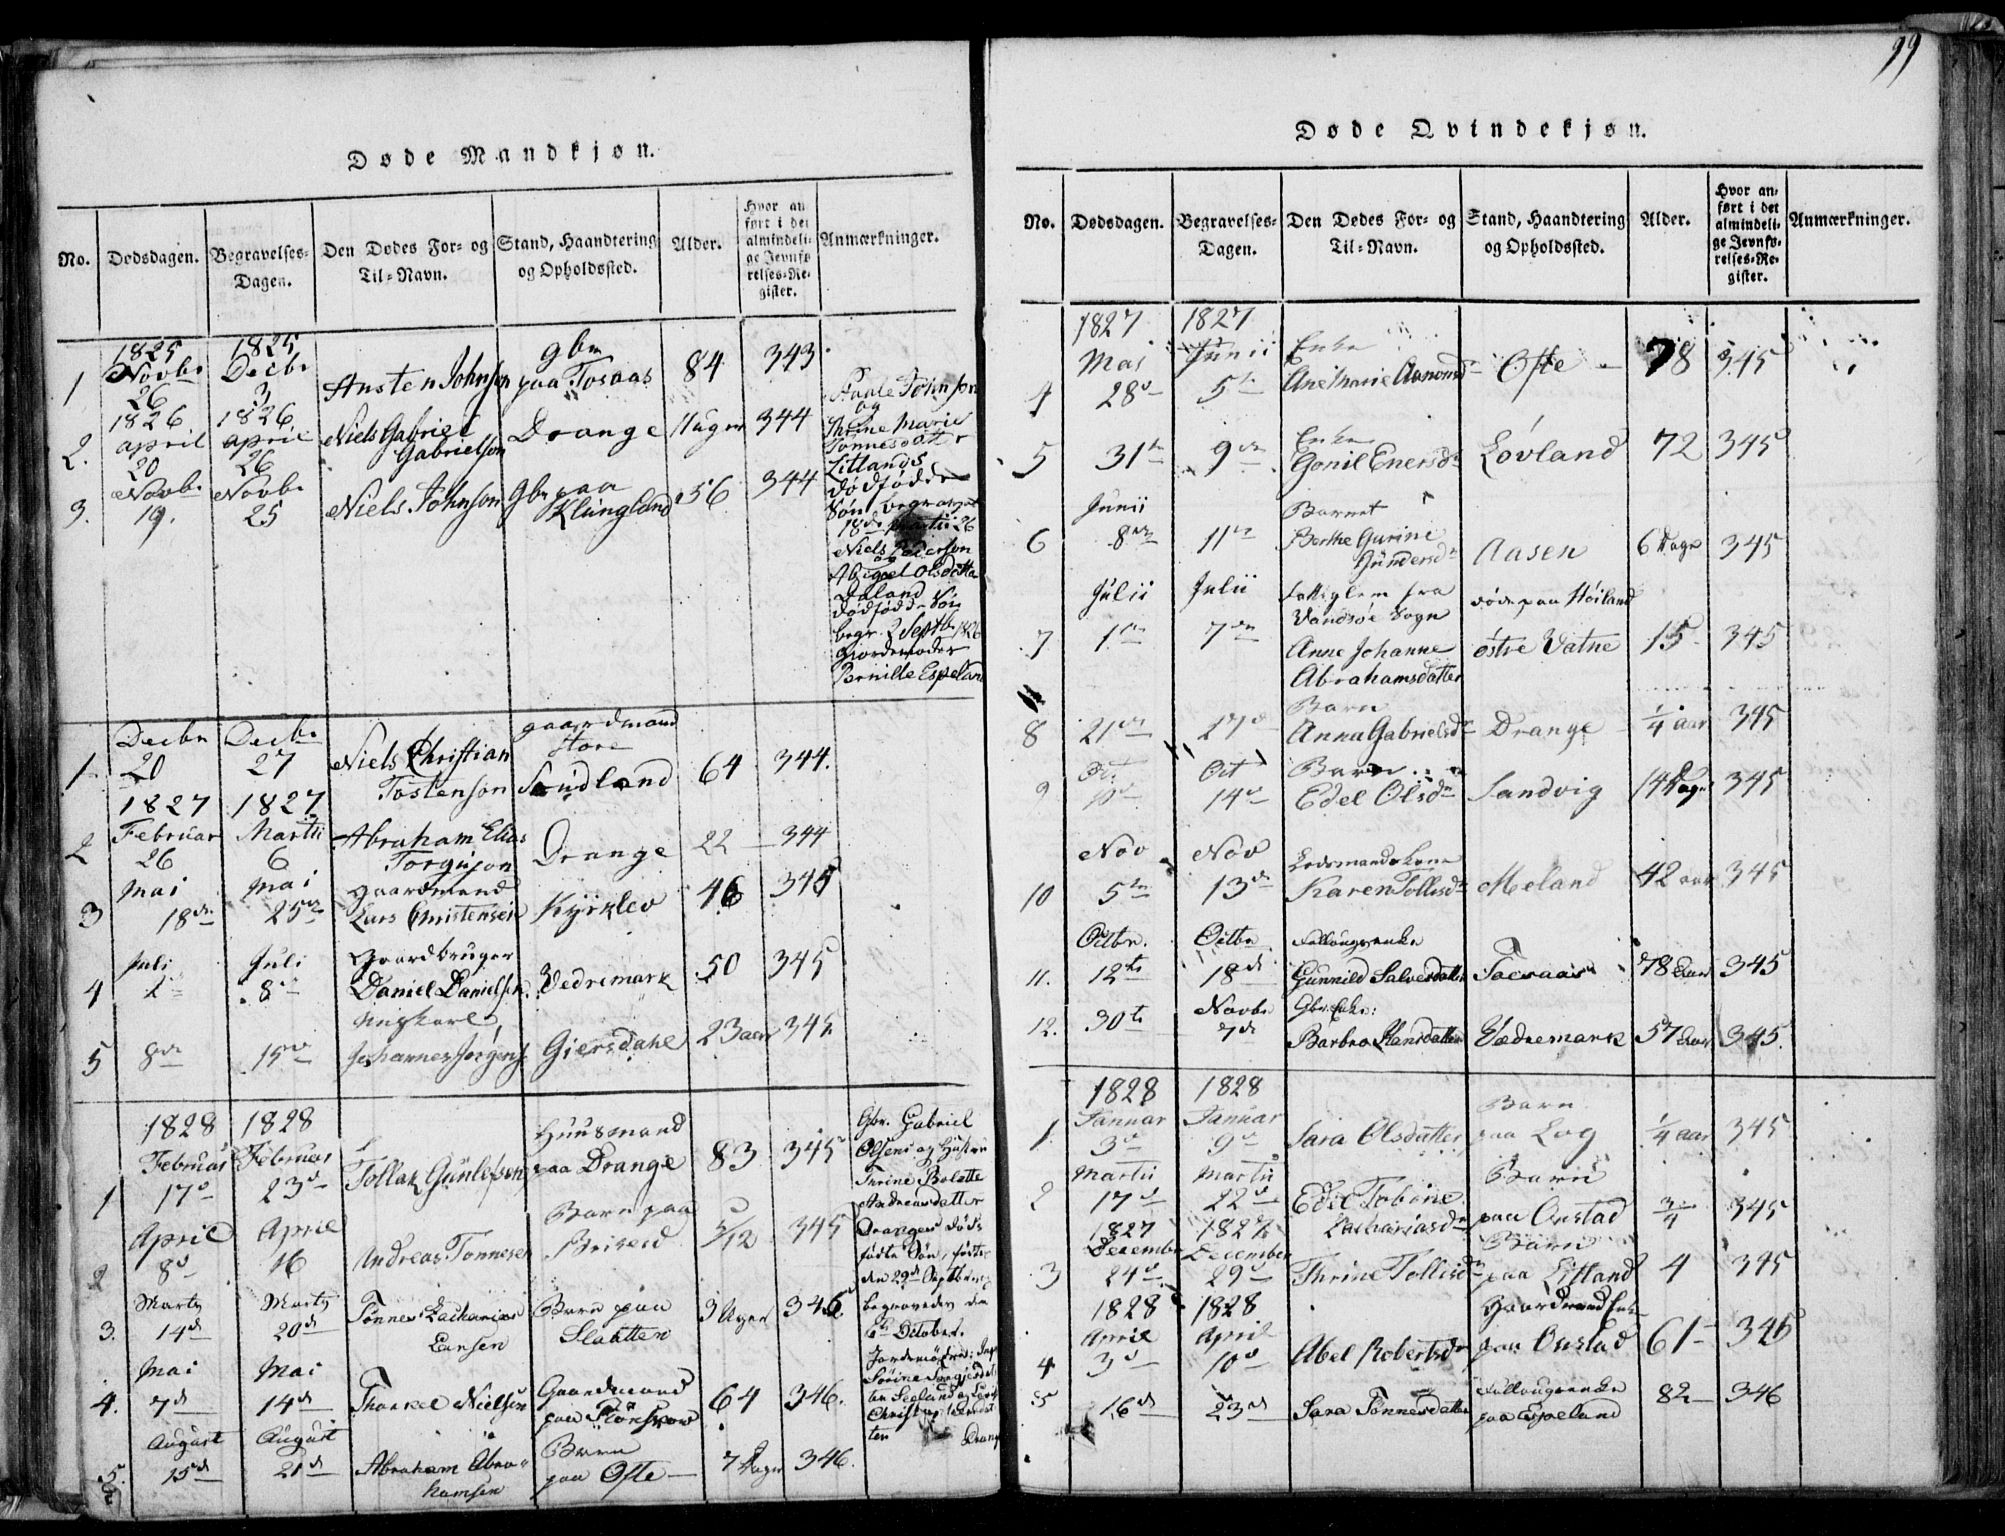 99
Døde Mandkjøn.
No. Dødsdagen. Begravelses-Dagen. Den Dødes For- og Til-Navn. Stand, Haandtering og Opholdssted. Alder. Hvor anført i det almindelige Jevnførelses-Register. Anmærkninger.
1825 1825
1 Novbr 26 Decbr 3 Ansten Johnson gbm paa Tosaas 84 343
1826 1826
2. April 20 April 26 Niels Gabriel Gabrielson Drange 11 uger 344
3. Novbr 19. Novbr 25 Niels Johnson gbm paa Klungland 56 344
Johnson
og
Thrine Marie
Tønnesdatter
Litlands
dødfødde
Søn begravet
18de Martii 26
Niels Pederson
og
Abigael Olsdatter
Daland
dødfødde Søn
begr. 2 Septbr 1826
Giordemoder
Pernille Espeland
1 Decbr 20 Decbr 27 Niels Christian Tostenson gaardmand Store Sundland 64 344.
1827 1827
2 Februar 26 Martii 6 Abraham Elias Torguson Drange 22 344
3 Mai 18de Mai 25de gaardmand Lars Christensen Kjirklev 46 345
4 Juli 1 Juli 8 Gaardbruger Daniel Danielsen Vedremark 50 345
5 8de 15de Ungkarl Johannes Jørgens. Giersdahl 23 aar 345
1828 1828
1 Februar 17d Februar 23d Tollak Gunlefsen Huusmand paa Drange 83 345
2 April 8d April 16 Andreas Tønnesen Barn paa Briseid 5/12 345
3. Marty 14d Marty 20d Tønnes Zacharias Larsen Barn paa Slaatten 3 Uger 346
4. Mai 7d Mai 14d Thorkel Nielsen Gaardmand paa 64 346.
5. August 15d August 21d Abraham Abrahamsen Barn paa Ofte 7 Dager 346.
Gbr. Gabriel
Olsens og Hustru
Thrine Bolette
Andreasdatter
Dranges død-
fødte Søn, født
den 29d Septbr
begraveden den
6te October.
Jordemødre: Inger
Sørine
Seeland og
Christ
ten Drange
Døde Qvindekjøn.
No. Dødsdagen. Begravelses-Dagen. Den Dødes For- og Til-Navn. Stand, Haandtering og Opholdssted. Alder. Hvor anført i det almindelige Jevnførelses-Register. Anmærkninger.
1827 1827
4 Mai 28d Junii 5te Enke Ane Marie Aamundsd. Ofte 78 345
5 31te 9de Enke Gonil Enersd. Lovland 72 345
6 Junii 8de 11te Barnet Berthe Gurine Gundersd. Aasen 6 Dage 345
7 Julii 1te Julii 7de Fattiglem fra Vandsøe Sogn Anne Johanne Abrahamsdatter døde paa Høiland østre Vatne 15 345
8 21de 27d Barn Anna Gabrielsd. Drange 1/4 aar 345
9 Oct 10d Oct 14d Barn Edel Olsd. Sandvig 14 Dage 345
10 Nov 5te Nov 13de Lodsmandskone Karen Tollisd. Meland 42 aar 345
11. Octbr. 12te Octbr 18de Fattougsenke Gunnild Salvesdatter Tosaas 78 Aar 345
12. 30te Novbr 7de Gbr. Enke: Barbro Hansdatter Vedremark 57 Aar 345.
1828 1828
1. Januar 3d Januar 9d Sara Olsdatter Barn paa Log 1/4 aar 345
2 Martii 17d Martii 22d Edel Tobine Zachariasd. Barn paa Onstad 3/4 345
1827 1827
3 December 24d December 29d Thrine Tollisd. Barn paa Litland 4 345
1828 1828
4 April 3d April 10d Abel Robertsd. Gaardmand Enke paa Onstad 61 346
5 16d 23d Sara Tønnesdatter Fattougsenke paa Espeland 82 346